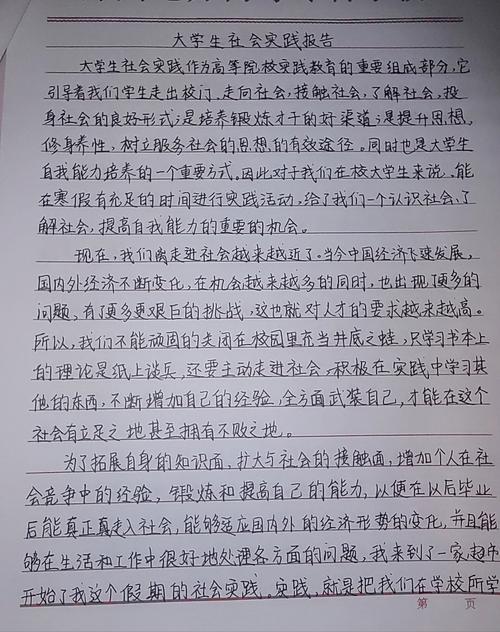 大学生社会实践报告
大学生社会实践作为高等院校实践教育的重要组成部分,它
引导着我们学生走出校门、走向社会,接触社会,了解社会,投
身社会的良好形式;是培养锻炼才干的好渠道;是提升思想,
修身养性,树立服务社会的思想的有效途径。同时也是大学生
自我能力培养的一个重要方式,因此对于我们在校大学生来说,能
在寒假有充足的时间进行实践活动,给了我们一个认识社会、了
解社会,提高自我能力的重要的机会。
现在,我们离走进社会越来越近了。当今中国经济飞速发展,
国内外经济不断变化,在机会越来越多的同时,也出现了更多的
问题,有了更多更艰巨的挑战,这也就对人才的要求越来越高。
所以,我们不能顽固的关闭在校园里充当井底之蛙,只学习书本上
的理论是纸上谈兵,还要主动走进社会,积极在实践中学习其
他的东西,不断增加自己的经验,全方面武装自己,才能在这个
社会有立足之地甚至拥有不败之地。
为了拓展自身的知识面,扩大与社会的接触面,增加个人在社
会竞争中的经验,锻炼和提高自己的能力,以便在以后毕业
后能真正真走入社会,能够适应国内外的经济形势的变化,并且能
够在生活和工作中很好地处理各方面的问题,我来到了一家超市
开始了我这个假期的社会实践。实践,就是把我们在学校所学
第 页